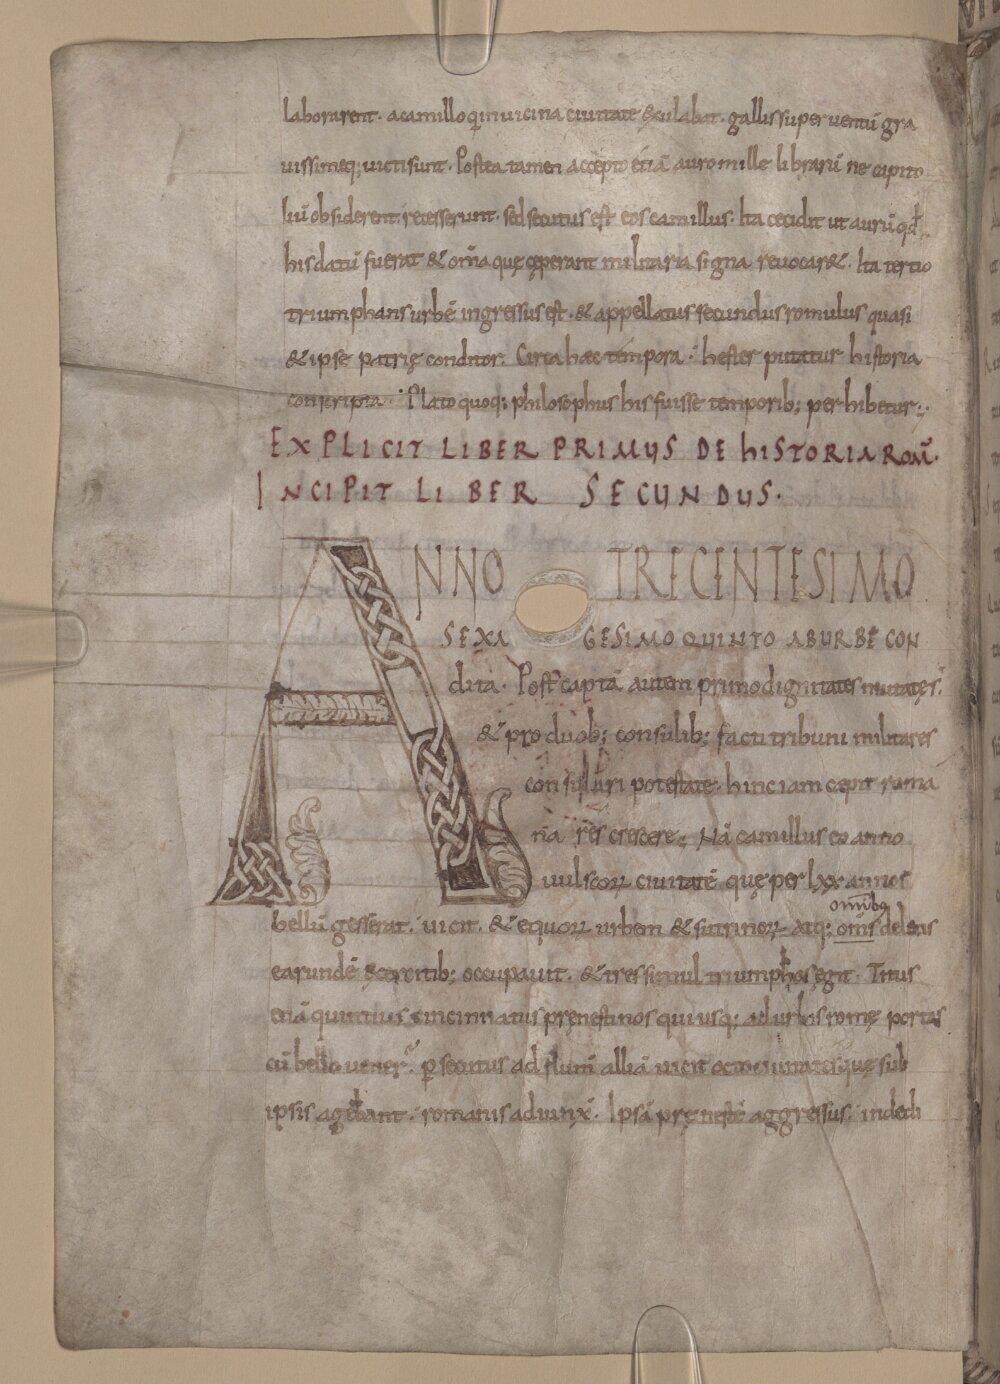 laborarent · a camillo q̄ in uicina ciuitate exulabat · gallis superuentū gra
uissimeq; uicti sunt · Postea tamen accepto etiā auro mille librarū ne capito
liū obsiderent · recesserunt · sed secutus est eos camillus · Ita cecidit ut aurū qd
his datū fuerat & om̄a quę cęperant militaria signa reuocar& · Ita tertio
triumphans urbē ingressus est · & appellatus secundus romulus quasi
& ipse patrię conditor · Circa haec tempora · hester putatur historia
conscripta · Plato quoq; philosophus his fuisse temporib; perhibetur ·
EXPLICIT LIBER PRIMUS DE HISTORIA ROM̄ ·
INCIPIT LIBER SECUNDUS ·
ANNO TRECENTESIMO
SEXAGESIMO QUINTO AB URBĒ CON
dita · Post captā autem primo dignitates mutatę s̄ ·
& pro duob; consulib; facti tribuni militares
consulari potestate · hinc iam cepit roma
na res crescere · Nā camillus eo anno
uulscorꝝ ciuitatē quę per lxx annos
omnibꝰ
bellū gesserat · uicit · & equorꝝ urbem & sutrinorꝝ atq; om̄is deletis
earundē exercitib; occupauit · & tres simul triumphos egit · Titus
etiā quintius cincinnatus pręnestinos qui usq; ad urbis romę portas
cū bello uener̄ · ꝑsecutus ad flum̄ alliā uicit octo ciuitates quę sub
ipsis agebant · romanis adiunx̄ · Ipsā pręnestē aggressus · in dedi